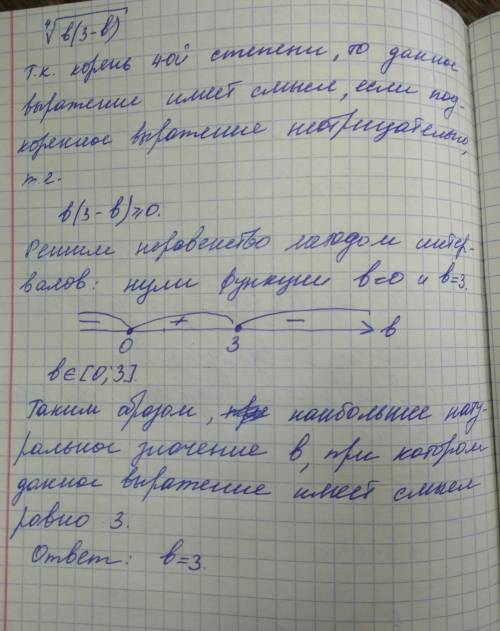 ⁴√в(3-в)
т.к. корень 4ой степени, то данное
выражение имеет смысл, если под-
коренное выражение неотрицательно,
т.е.
в(3-в)≥0.
Решим неравенство методом интер-
валов: нули функции в=0 и в=3.
- + - в
0 3
в∈[0;3].
Таким образом, наибольшее нату-
ральное значение в, при котором
данное выражение имеет смысл
равно 3.
Ответ: в=3.